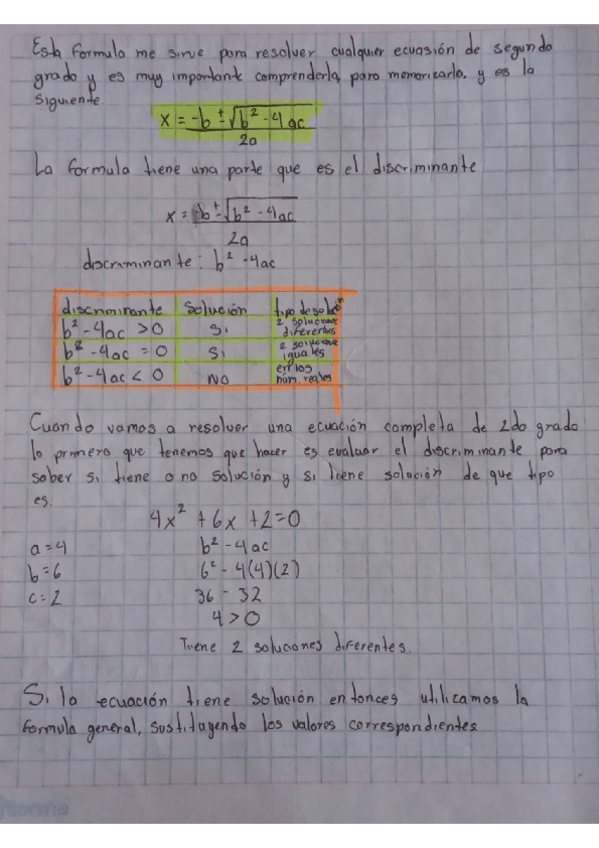 Esta formula me sirve para resolver cualquier ecuasión de segundo
grado y es muy importante comprenderla, para memorizarla. y es la
siguiente
x = -b ± √b² - 4ac
2a
La formula tiene una parte que es el discriminante
x = -b ± √b² - 4ac
2a
discriminante: b² - 4ac
discriminante Solución tipo de solución
b² - 4ac > 0 si 2 soluciones diferentes
b² - 4ac = 0 si 2 soluciones iguales
b² - 4ac < 0 no en los núm. reales
Cuando vamos a resolver una ecuación completa de 2do grado
lo primero que tenemos que hacer es evaluar el discriminante para
saber si tiene o no solución y si tiene solución de que tipo
es.
4x² + 6x + 2 = 0
a = 4 b² - 4ac
b = 6 6² - 4(4)(2)
c = 2 36 - 32
4 > 0
Tiene 2 soluciones diferentes.
Si la ecuación tiene solución entonces utilizamos la
formula general, sustituyendo los valores correspondientes
Norma